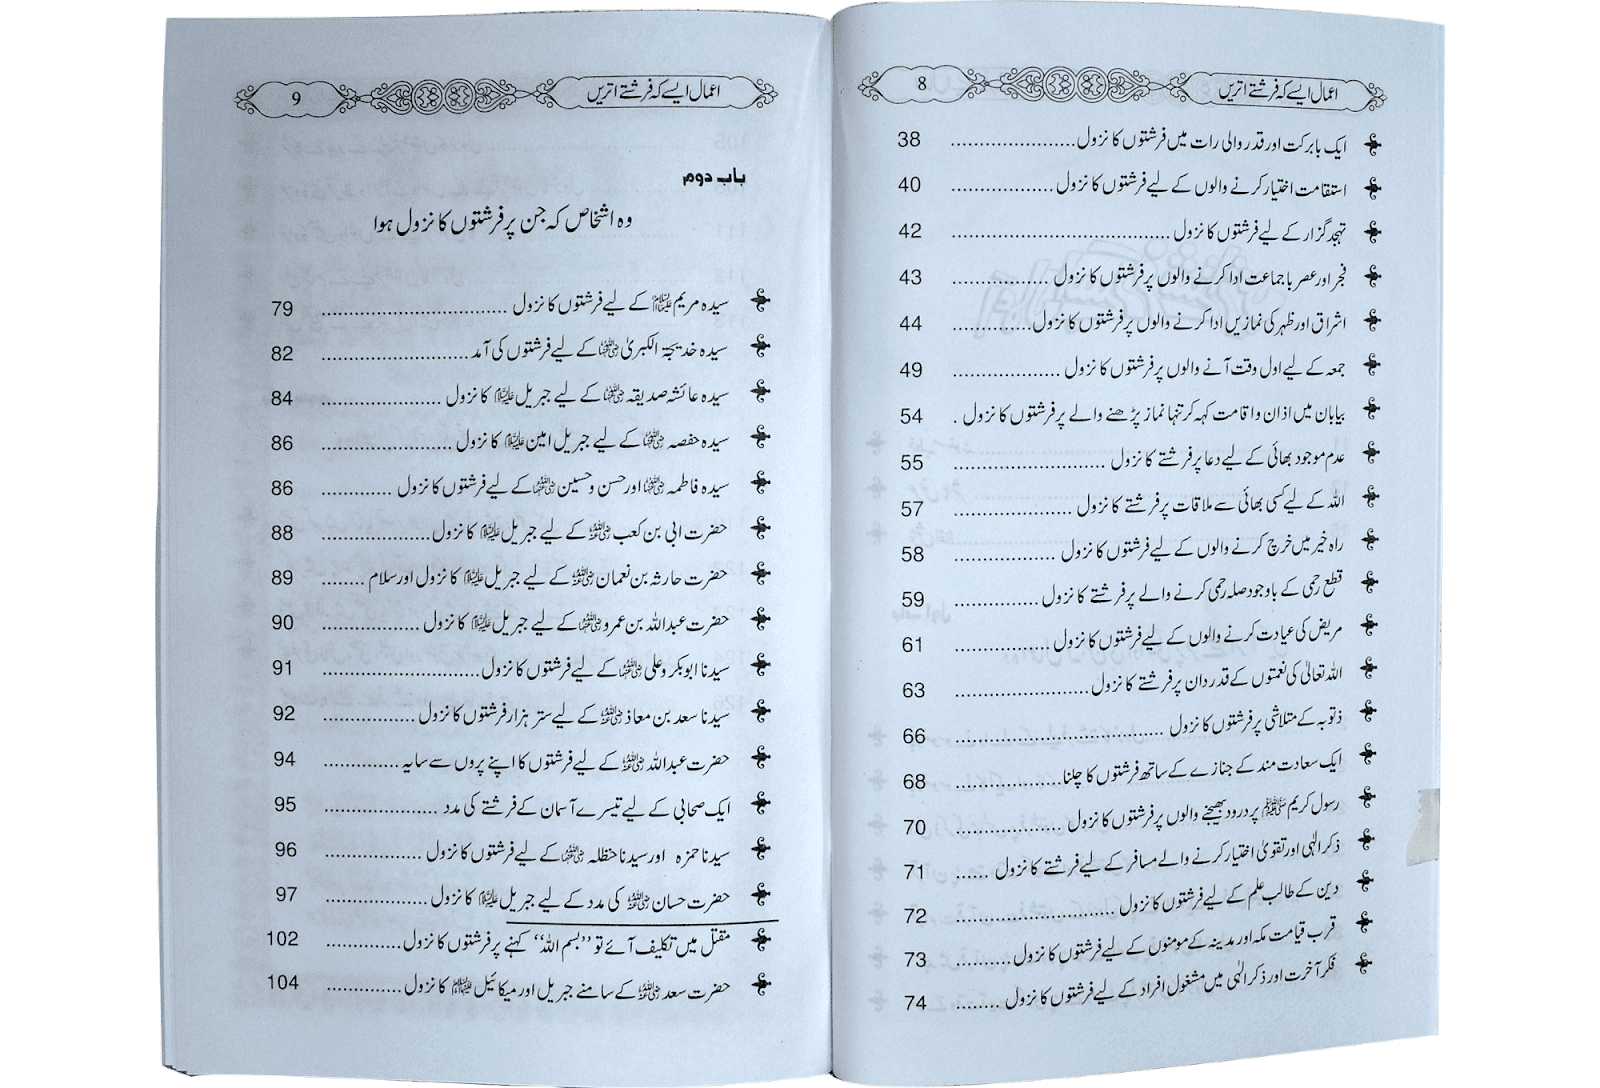 اعمال ایسے کہ فرشتے اتریں 8
ایک بابرکت اور قدر والی رات میں فرشتوں کا نزول ..................... 38
استقامت اختیار کرنے والوں کے لیے فرشتوں کا نزول .................. 40
تہجد گزار کے لیے فرشتوں کا نزول ..................................... 42
فجر اور عصر باجماعت ادا کرنے والوں پر فرشتوں کا نزول ................ 43
اشراق اور ظہر کی نمازیں ادا کرنے والوں پر فرشتوں کا نزول ............. 44
جمعہ کے لیے اول وقت آنے والوں پر فرشتوں کا نزول .................. 49
بیابان میں اذان و اقامت کہہ کر تنہا نماز پڑھنے والے پر فرشتوں کا نزول . 54
عدم موجود بھائی کے لیے دعا پر فرشتے کا نزول .......................... 55
اللہ کے لیے کسی بھائی سے ملاقات پر فرشتے کا نزول .................... 57
راہ خیر میں خرچ کرنے والوں کے لیے فرشتوں کا نزول ................. 58
قطع رحمی کے باوجود صلہ رحمی کرنے والے پر فرشتے کا نزول .............. 59
مریض کی عیادت کرنے والوں کے لیے فرشتوں کا نزول ................ 61
اللہ تعالیٰ کی نعمتوں کے قدردان پر فرشتے کا نزول ....................... 63
توبہ کے متلاشی پر فرشتوں کا نزول ................................... 66
ایک سعادت مند کے جنازے کے ساتھ فرشتوں کا چلنا ................... 68
رسول کریم ﷺ پر درود بھیجنے والوں پر فرشتوں کا نزول .................. 70
ذکر الٰہی اور تقویٰ اختیار کرنے والے مسافر کے لیے فرشتے کا نزول ...... 71
دین کے طالب علم کے لیے فرشتوں کا نزول ............................ 72
قرب قیامت مکہ اور مدینہ کے مومنوں کے لیے فرشتوں کا نزول .......... 73
فکر آخرت اور ذکر الٰہی میں مشغول افراد کے لیے فرشتوں کا نزول ........ 74
اعمال ایسے کہ فرشتے اتریں 9
باب دوم
وہ اشخاص کہ جن پر فرشتوں کا نزول ہوا
سیدہ مریم علیہا السلام کے لیے فرشتوں کا نزول ................................ 79
سیدہ خدیجۃ الکبریٰ رضی اللہ عنہا کے لیے فرشتوں کی آمد ......................... 82
سیدہ عائشہ صدیقہ رضی اللہ عنہا کے لیے جبریل علیہ السلام کا نزول .................... 84
سیدہ حفصہ رضی اللہ عنہا کے لیے جبریل امین علیہ السلام کا نزول ...................... 86
سیدہ فاطمہ رضی اللہ عنہا اور حسن و حسین رضی اللہ عنہما کے لیے فرشتوں کا نزول ............ 86
حضرت ابی بن کعب رضی اللہ عنہ کے لیے جبریل علیہ السلام کا نزول .................. 88
حضرت حارثہ بن نعمان رضی اللہ عنہ کے لیے جبریل علیہ السلام کا نزول اور سلام ........ 89
حضرت عبداللہ بن عمرو رضی اللہ عنہما کے لیے جبریل علیہ السلام کا نزول ................. 90
سیدنا ابوبکر و علی رضی اللہ عنہما کے لیے فرشتوں کا نزول ........................... 91
سیدنا سعد بن معاذ رضی اللہ عنہ کے لیے ستر ہزار فرشتوں کا نزول ................ 92
حضرت عبداللہ رضی اللہ عنہ کے لیے فرشتوں کا اپنے پروں سے سایہ ............. 94
ایک صحابی کے لیے تیسرے آسمان کے فرشتے کی مدد .................... 95
سیدنا حمزہ اور سیدنا حنظلہ رضی اللہ عنہما کے لیے فرشتوں کا نزول ................. 96
حضرت حسان رضی اللہ عنہ کی مدد کے لیے جبریل علیہ السلام کا نزول ................... 97
مقتل میں تکلیف آئے تو ’’بسم اللہ‘‘ کہنے پر فرشتوں کا نزول ............. 102
حضرت سعد رضی اللہ عنہ کے سامنے جبریل اور میکائیل علیہما السلام کا نزول ............. 104